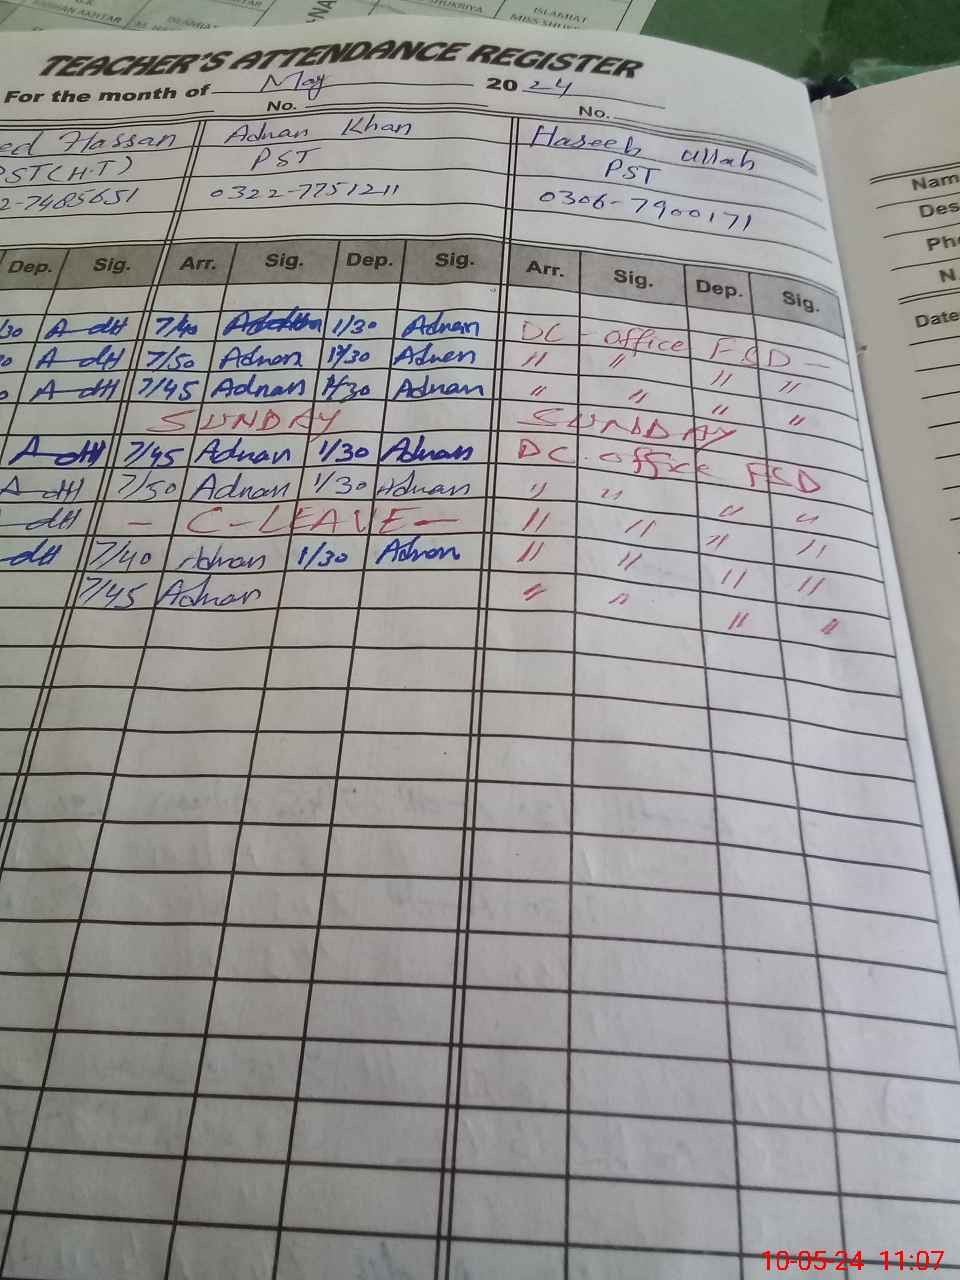 ISLAMIAT
TEACHER'S ATTENDANCE REGISTER
For the month of May 2024
No. No.
ed Hassan Adnan Khan Haseeb ullah
PST(H.T) PST PST
2-7485651 0322-7751211 0306-7900171
Dep. Sig. Arr. Sig. Dep. Sig. Arr. Sig. Dep. Sig.
/30 7/40 1/30 Adnan DC - office FSD -
7/50 Adnan 1/30 Adnan " " " "
7/45 Adnan 1/30 Adnan " " " "
SUNDAY SUNDAY
7/45 Adnan 1/30 Adnan DC. office FSD
7/50 Adnan 1/30 Adnan " " " "
- C-LEAVE - " " " "
7/40 Adnan 1/30 Adnan " " " "
7/45 Adnan " " " "
Nam
Des
Pho
N.
Date
10-05-24 11:07